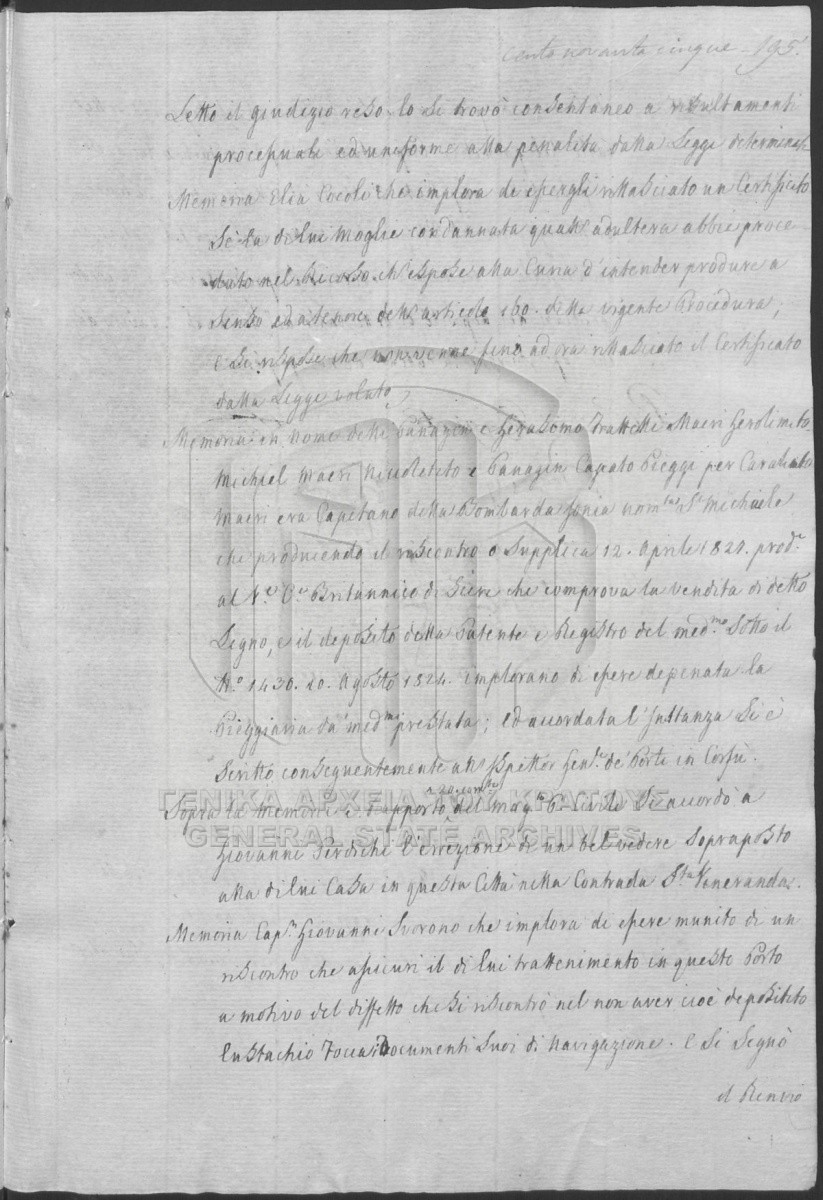 cento novanta cinque - 195.
Letto il giudizio reso lo si trovò consentaneo a risultamenti
processuali ed uniforme alla penalità dalla Legge determinata
Memoria Elia Cocoli che implora di essergli rillasciato un Certificato
se la di lui Moglie condannata quall' adultera abbia proce-
duto nel Ricorso ch' espose alla Curia d'intender produre a
senso ed a tenore dell' articolo 160. della vigente Procedura;
e si rispose che non venne fino ad ora rillasciato il Certificato
dalla Legge voluto,
Memoria in nome delli Panagin e Gerasomo Frattelli Maeri Gerolimato
Michiel Maeri Nicoletto e Panagin Capato Pieggi per
Maeri era Capitano della Bombarda Jonia nom.ta S. Michiele
che producendo il riscontro o Supplica 12. Aprile 1824. prod.
al V. C. Britannico di che comprova la vendita di detto
Legno, e il deposito della Patente e Registro del med.mo sotto il
N.o 1430. 20. Agosto 1824. implorano di essere depenata la
Pieggiaria da med.mi prestata; ed accordata l' Inttanza si è
Scritto conseguentemente all' Ispettor Gen.le de' Porti in Corfù.
Sopra la memoria e rapporto del Mag.to Civile si accordò a
ΓΕΝΙΚΑ ΑΡΧΕΙΑ ΤΟΥ ΚΡΑΤΟΥΣ
GENERAL STATE ARCHIVES
Giovanni l' errezione di un belvedere soprapposto
alla di lui Casa in questa Città nella Contrada S.ta Veneranda.
Memoria Cap.n Giovanni Svorono che implora di essere munito di un
riscontro che assicuri il di lui trattenimento in questo Porto
a motivo del diffetto che si riscontrò nel non aver cioè depositato
Eustachio Documenti suoi di Navigazione. e si Segnò
il Renvio